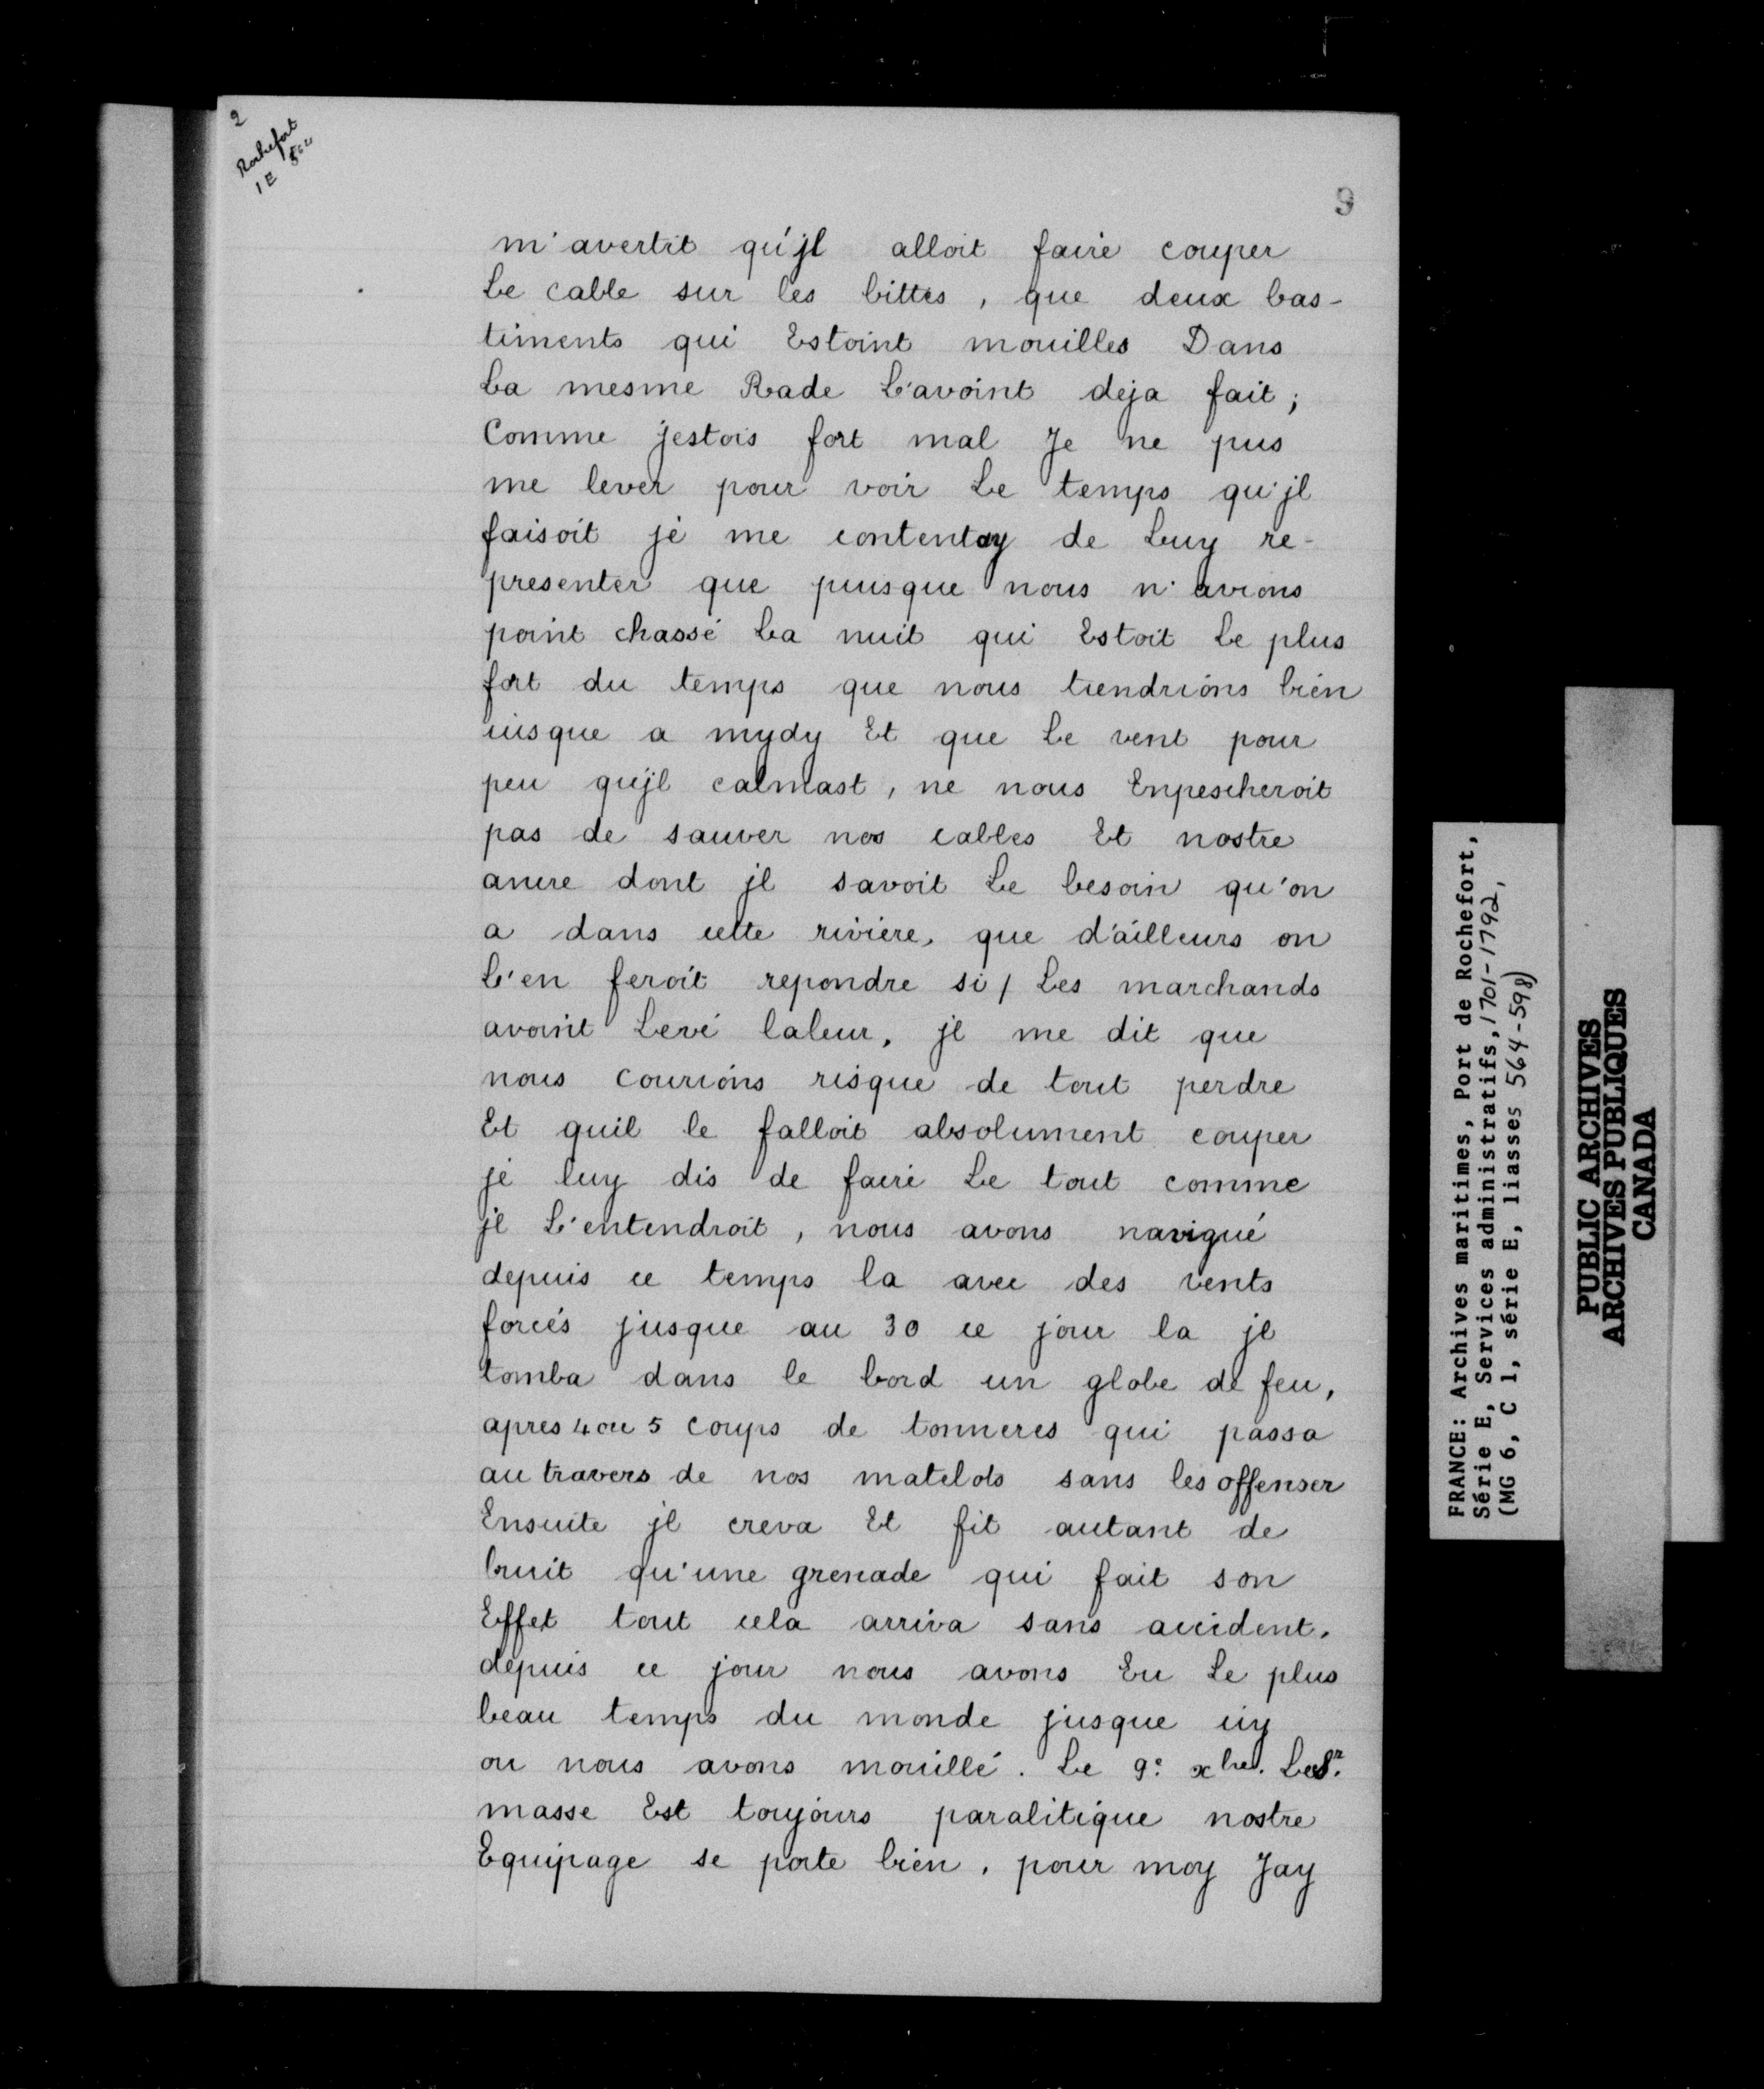 2
Rochefort
1 E
9
m'avertit qu'jl alloit faire couper
Le cable sur les bittes, que deux bas-
timents qui Estoint mouilles Dans
La mesme Rade L'avoint deja fait;
Comme jestois fort mal Je ne pus
me lever pour voir Le temps qu'jl
faisoit je me contentay de Luy re-
presenter que puisque nous n'avions
point chassé La nuit qui Estoit Le plus
fort du temps que nous tiendrions bien
iusque a mydy Et que Le vent pour
peu qu'jl calmast, ne nous Enpescheroit
pas de sauver nos cables Et nostre
ancre dont jl savoit Le besoin qu'on
a dans cette riviere, que d'ailleurs on
L'en feroit repondre si / Les marchands
avoint Levé laleur, jl me dit que
nous courions risque de tout perdre
Et quil le falloit absolument couper
je luy dis de faire Le tout comme
jl L'entendroit, nous avons navigué
depuis ce temps la avec des vents
forcés jusque au 30 ce jour la jl
tomba dans le bord un globe de feu,
apres 4 ou 5 coups de tonneres qui passa
au travers de nos matelots sans les offenser
Ensuite jl creva Et fit autant de
bruit qu'une grenade qui fait son
Effet tout cela arriva sans accident.
depuis ce jour nous avons Eu Le plus
beau temps du monde jusque icy
ou nous avons mouillé. Le 9e xbre. Le Sr.
masse Est toujours paralitique nostre
Equipage se porte bien, pour moy Jay
FRANCE: Archives maritimes, Port de Rochefort,
Série E, Services administratifs, 1701-1792,
(MG 6, C 1, série E, liasses 564-598)
PUBLIC ARCHIVES
ARCHIVES PUBLIQUES
CANADA